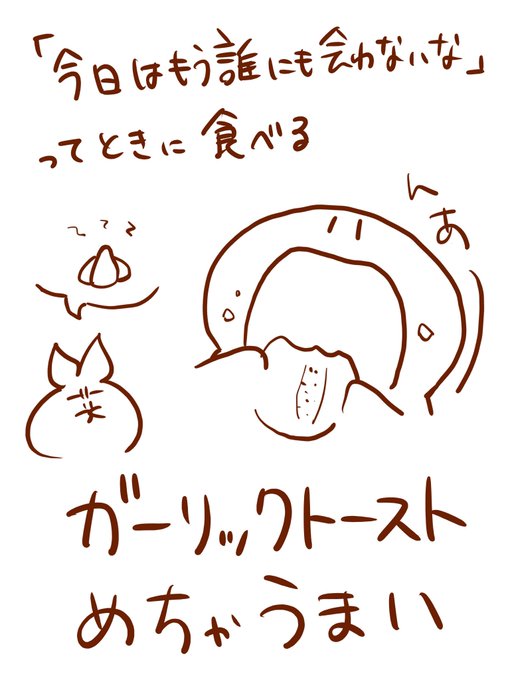 「今日はもう誰にも会わないな」
ってときに食べる
んあ
ガーリックトースト
めちゃうまい